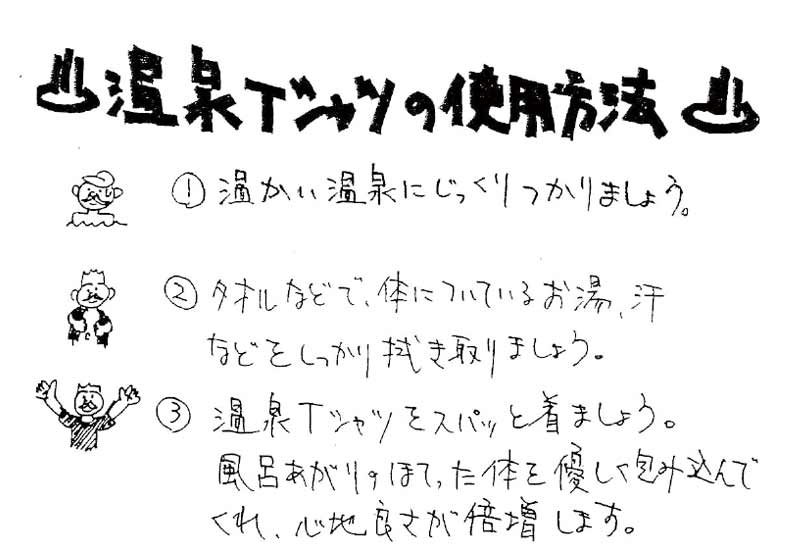 ♨温泉Tシャツの使用方法♨
① 温かい温泉にじっくりつかりましょう。
② タオルなどで、体についているお湯、汗
などをしっかり拭き取りましょう。
③ 温泉Tシャツをスパッと着ましょう。
風呂あがりのほてった体を優しく包み込んで
くれ、心地良さが倍増します。